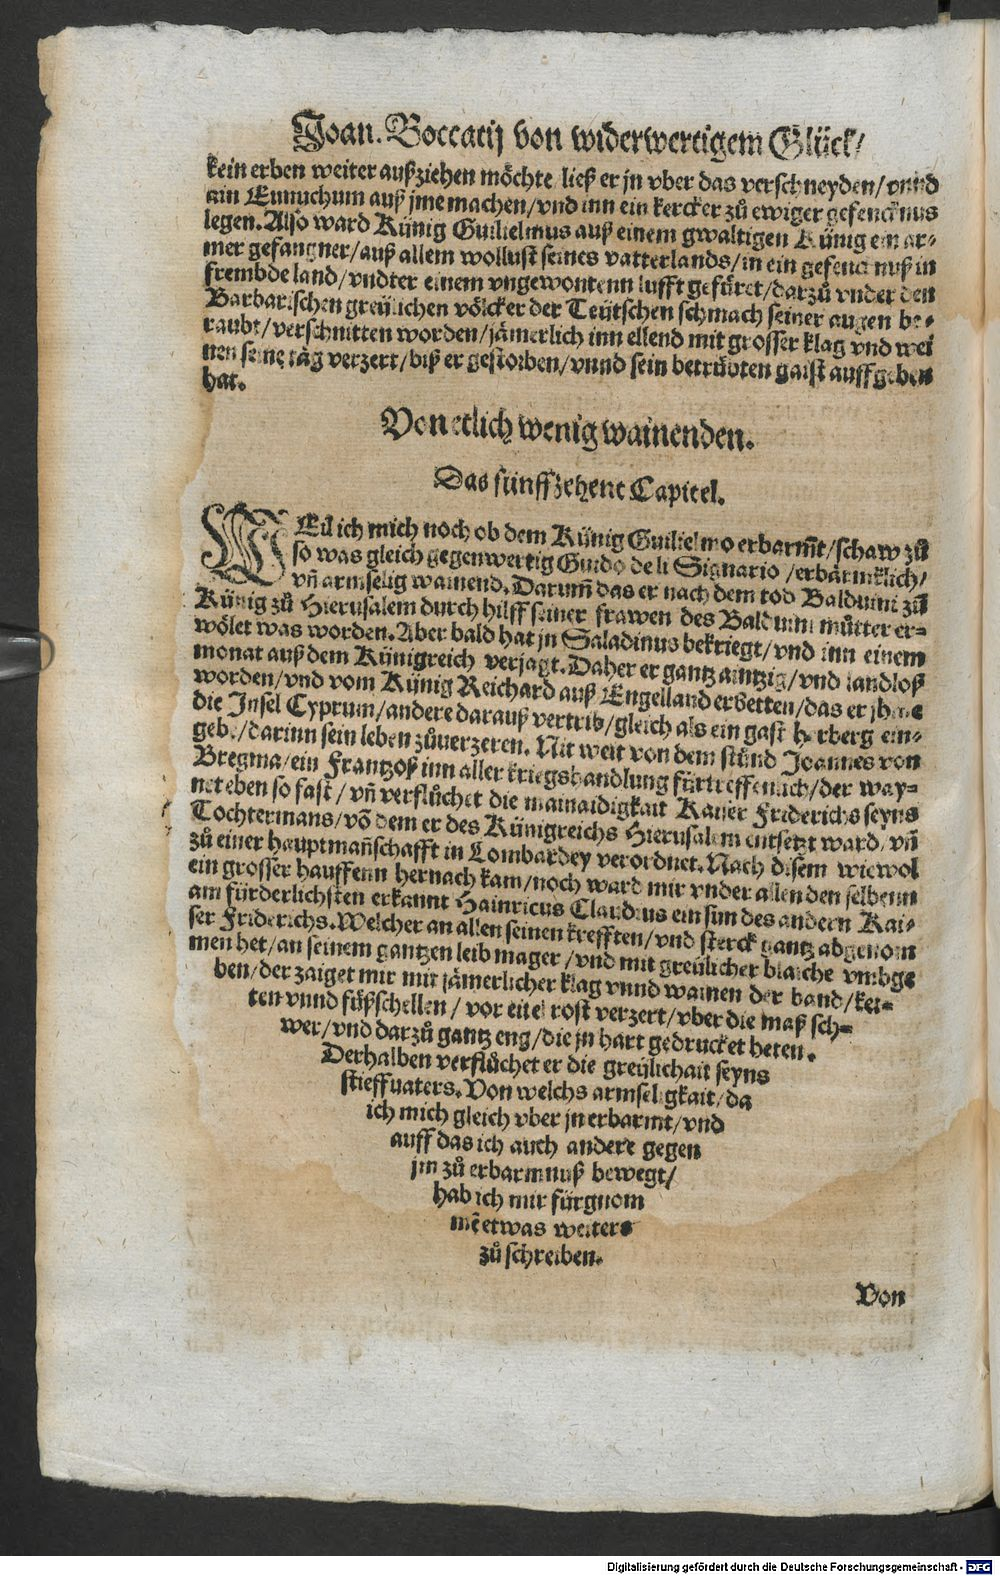 Joan. Boccatij von widerwertigem Glück/
kein erben weiter außziehen möchte/ ließ er jn vber das verschneyden/ vnnd
ain Eunuchum auß jme machen/ vnd inn ein kercker zů ewiger gefencknus
legen. Also ward Künig Guilielmus auß einem gwaltigen Künig ein ar-
mer gefangner/ auß allem wollust seines vatterlands/ in ein gefencknuß in
frembde land/ vndter einem vngewontenn lufft gefüret/ darzů vnder den
Barbarischen greylichen völcker der Teütschen schmach seiner augen be-
raubt/ verschnitten worden/ jämerlich inn ellend mit grosser klag vnd wei
nen seine täg verzert/ biß er gestorben/ vnnd sein betrübten gaist auffgeben
hat.
Von etlich wenig wainenden.
Das fünffzehent Capitel.
WEil ich mich noch ob dem Künig Guilielmo erbarm̃t/ schaw zů
so was gleich gegenwertig Guido deli Signario/ erbärmklich/
vñ armselig wainend. Darum̃ das er nach dem tod Balduini zů
Künig zů Hierusalem durch hilff seiner frawen des Balduini můtter er-
wölet was worden. Aber bald hat jn Saladinus bekriegt/ vnd inn einem
monat auß dem Künigreich verjagt. Daher er gantz aintzig/ vnd landloß
worden/ vnd vom Künig Reichard auß Engelland erbetten/ das er jhme
die Insel Cyprum/ andere darauß vertrib/ gleich als ein gast herberg ein-
geb/ darinn sein leben zůuerzeren. Nit weit von dem stůnd Joannes von
Bregma/ ein Frantzoß inn aller kriegshandlung fürtreffenlich/ der way-
net eben so fast/ vñ verflůchet die mainaidigkait Kaiser Friderichs seyns
Tochtermans/ võ dem er des Künigreichs Hierusalem entsetzt ward/ vñ
zů einer hauptmañschafft in Lombardey verordnet. Nach disem wiewol
ein grosser hauffenn hernach kam/ noch ward mir vnder allen den selbenn
am fürderlichsten erkannt Hainricus Claudus ein sun des andern Kai-
ser Friderichs. Welcher an allen seinen krefften/ vnd sterck gantz abgenom
men het/ an seinem gantzen leib mager/ vnd mit greülicher blaiche vmbge
ben/ der zaiget mir mit jämerlicher klag vnnd wainen der band/ ket-
ten vnnd fůßschellen/ vor eitel rost verzert/ vber die maß sch-
wer/ vnd darzů gantz eng/ die jn hart gedrucket heten.
Derhalben verflůchet er die greylichait seyns
stieffuaters. Von welchs armseligkait/ da
ich mich gleich vber jn erbarmt/ vnd
auff das ich auch andere gegen
jm zů erbarmnuß bewegt/
hab ich mir fürgnom
mẽ etwas weiters
zů schreiben.
Von
Digitalisierung gefördert durch die Deutsche Forschungsgemeinschaft - DFG